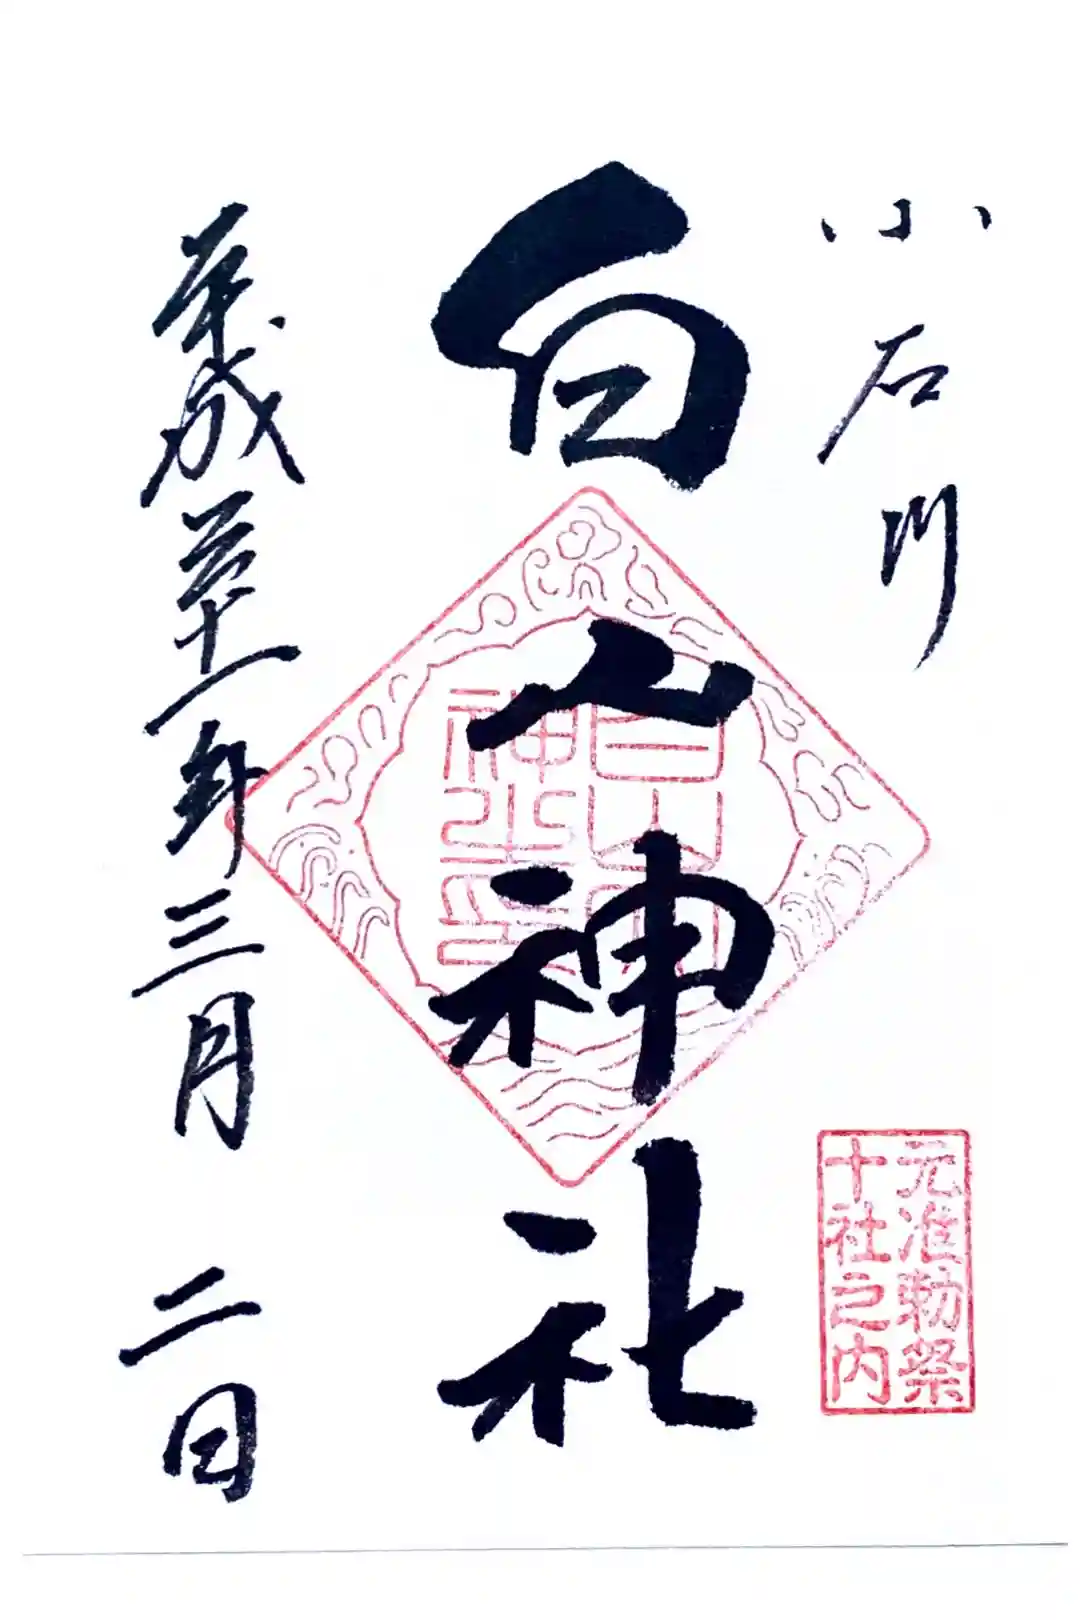 小石川
元准勅祭
十社之内
白山神社
平成三十一年三月二日